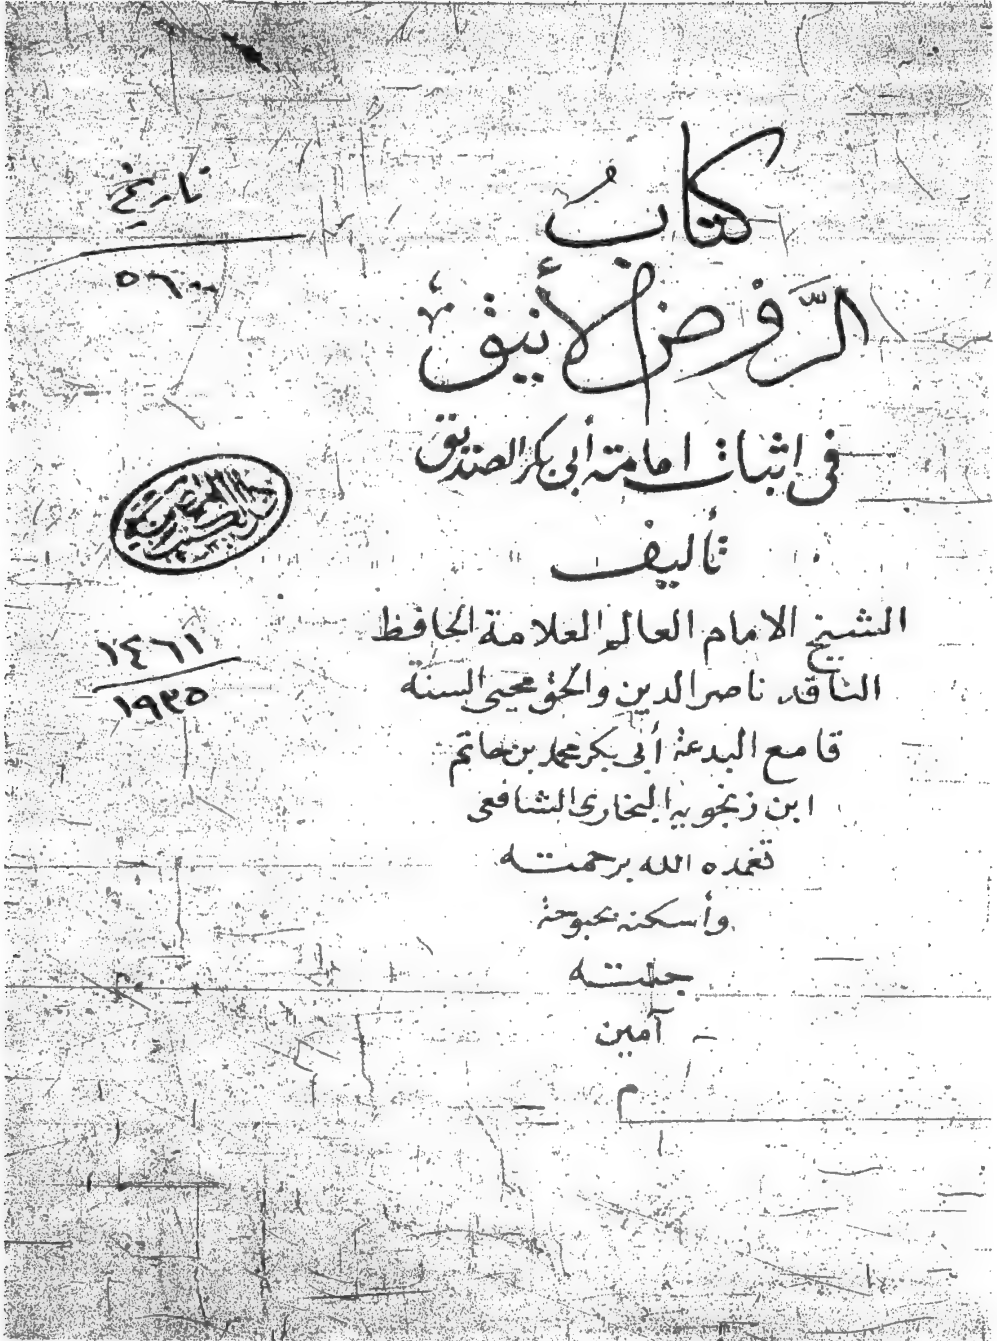 كتابُ
الرَّوض الأنيق
في اثبات امامة أبي بكر الصديق
تأليف
الشيخ الامام العالم العلامة الحافظ
الناقد ناصر الدين والحق محيي السنة
قامع البدعة أبي بكر محمد بن حاتم
ابن زنجويه البخاري الشافعي
تغمده الله برحمته
وأسكنه بحبوحة
جنته
آمين
م
تاريخ
٥٦٠٠
١٤٦١
١٩٣٥